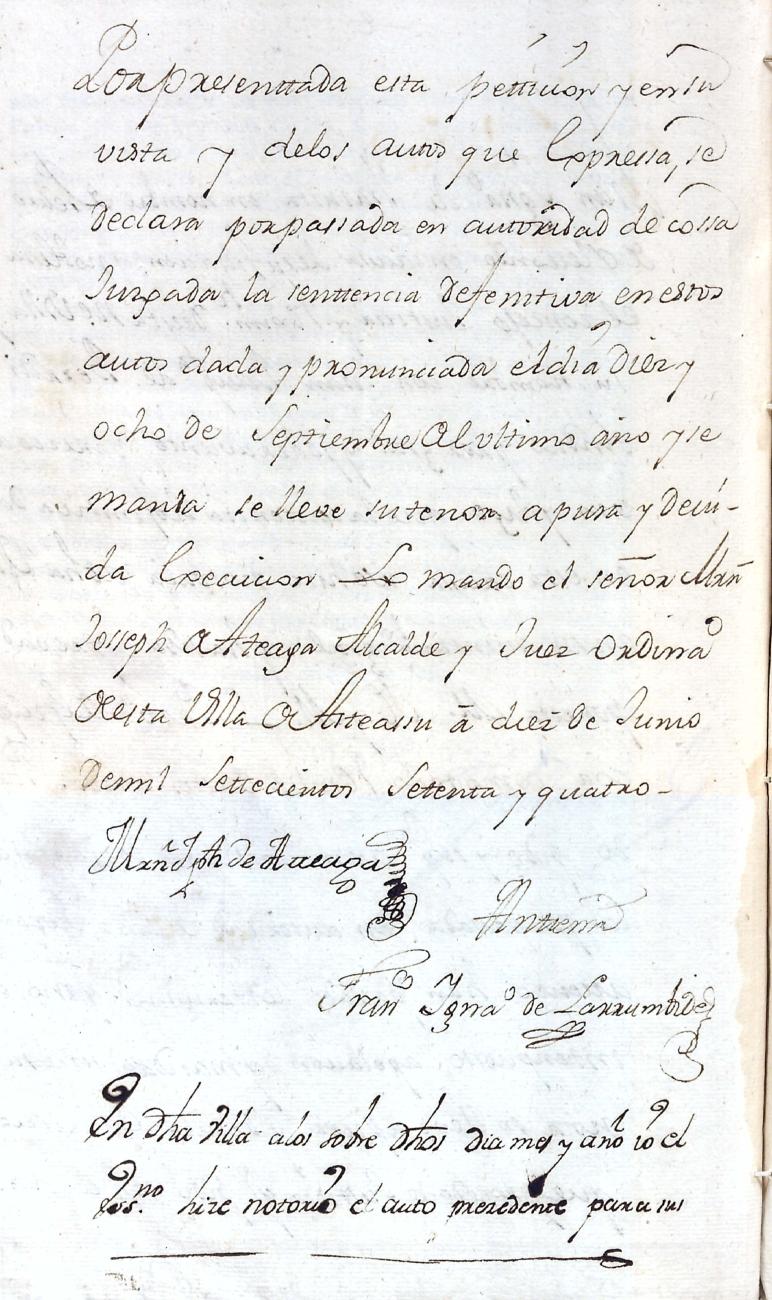 Por presenttada esta pettizion y en su
vista y de los autos que Expressa, se
declara por passada en autoridad de cossa
Juzgada la senttencia defenitiva en estos
autos dada y pronunciada el dia Diez y
ocho de Septtiembre del ultimo año y se
manda se lleve su tenor a pura y devi-
da Execucion Lo mando el señor Mrn
Josseph de Ateaga Alcalde y Juez ordinrao
de esta Villa de Asteassu á diez de Junio
de mil Settecientos Setenta y quatro-
Mrn Jph de Ateaga
Antte mi
Frano Ignao de Larrumbide
En dha Villa a los sobre dhos dia mes y año io el
Essno hize notorio el auto prezedente para sus